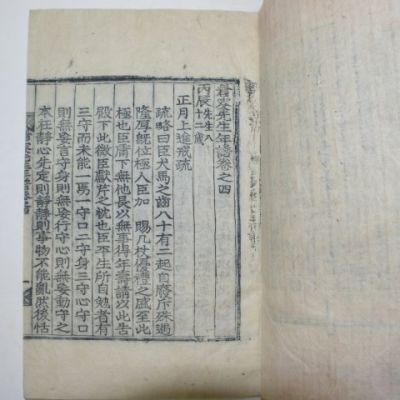 眉叟先生年譜卷之四
丙辰先生八十二歲
正月上進戒疏
疏略曰臣犬馬之齒八十有二起自廢斥殊遇
隆厚位極人臣加 賜几杖優禮之盛至此
極也臣庸下無他長以無事得年壽請以此告
殿下此微臣獻芹之忱也臣平生所自勉者有
三守而未能焉一守口二守身三守心守口
則無妄言守身則無妄行守心則無妄動守之
本在靜心先定則靜靜則事物不能亂然後恬